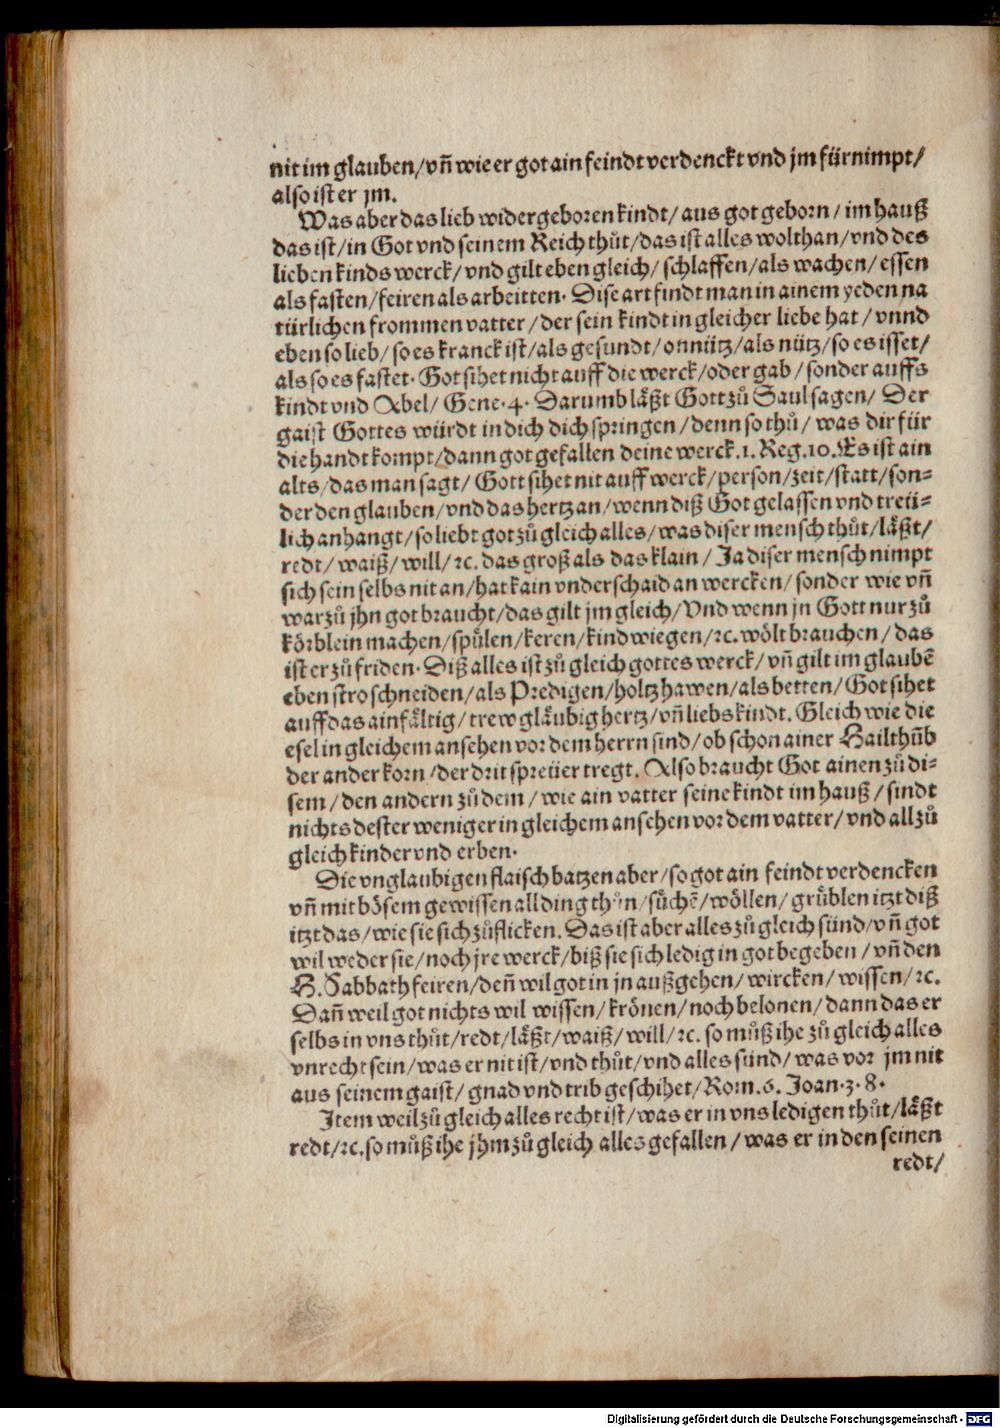 nit im glauben/ vñ wie er got ain feindt verdenckt vnd jm fürnimpt/
also ist er jm.
Was aber das lieb widergeboren kindt/ aus got geborn/ im hauß
das ist/ in Got vnd seinem Reich thůt/ das ist alles wolthan/ vnd des
lieben kinds werck/ vnd gilt eben gleich/ schlaffen/ als wachen/ essen
als fasten/ feiren als arbeitten. Dise art findt man in ainem yeden na
türlichen frommen vatter/ der sein kindt in gleicher liebe hat/ vnnd
eben so lieb/ so es kranck ist/ als gesundt/ onnütz/ als nütz/ so es isset/
als so es fastet. Got sihet nicht auff die werck/ oder gab/ sonder auffs
kindt vnd Abel/ Gene. 4. Darumb läßt Gott zů Saul sagen/ Der
gaist Gottes würdt in dich dich springen/ denn so thů/ was dir für
die handt kompt/ dann got gefallen deine werck. 1. Reg. 10. Es ist ain
alts/ das man sagt/ Gott sihet nit auff werck/ person/ zeit/ statt/ son-
der den glauben/ vnd das hertz an/ wenn diß Got gelassen vnd treü-
lich anhangt/ so liebt got zů gleich alles/ was diser mensch thůt/ läßt/
redt/ waiß/ will/ ꝛc. das groß als das klain/ Ja diser mensch nimpt
sich sein selbs nit an/ hat kain vnderschaid an wercken/ sonder wie vñ
warzů jhn got braucht/ das gilt jm gleich/ Vnd wenn jn Gott nur zů
körblein machen/ spůlen/ keren/ kind wiegen/ ꝛc. wölt brauchen/ das
ist er zů friden. Diß alles ist zů gleich gottes werck/ vñ gilt im glaubē
eben stro schneiden/ als Predigen/ holtz hawen/ als betten/ Got sihet
auff das ainfältig/ trew gläubig hertz/ vñ liebs kindt. Gleich wie die
esel in gleichem ansehen vor dem herrn sind/ ob schon ainer Hailthūb
der ander korn/ der drit spreüer tregt. Also braucht Got ainen zů di-
sem/ den andern zů dem/ wie ain vatter seine kindt im hauß/ sindt
nichts dester weniger in gleichem ansehen vor dem vatter/ vnd all zů
gleich kinder vnd erben.
Die vnglaubigen flaischbatzen aber/ so got ain feindt verdencken
vñ mit bösem gewissen all ding thůn/ sůchē/ wöllen/ grüblen itzt diß
itzt das/ wie sie sich zůflicken. Das ist aber alles zů gleich sünd/ vñ got
wil weder sie/ noch jre werck/ biß sie sich ledig in got begeben/ vñ den
H. Sabbath feiren/ deñ wil got in jn außgehen/ wircken/ wissen/ ꝛc.
Dañ weil got nichts wil wissen/ krönen/ noch belonen/ dann das er
selbs in vns thůt/ redt/ läßt/ waiß/ will/ ꝛc. so můß ihe zů gleich alles
vnrecht sein/ was er nit ist/ vnd thůt/ vnd alles sünd/ was vor jm nit
aus seinem gaist/ gnad vnd trib geschihet/ Rom. 6. Joan. 3. 8.
Item weil zů gleich alles recht ist/ was er in vns ledigen thůt/ läßt
redt/ ꝛc. so můß ihe jhm zů gleich alles gefallen/ was er in den seinen
redt/
Digitalisierung gefördert durch die Deutsche Forschungsgemeinschaft - DFG